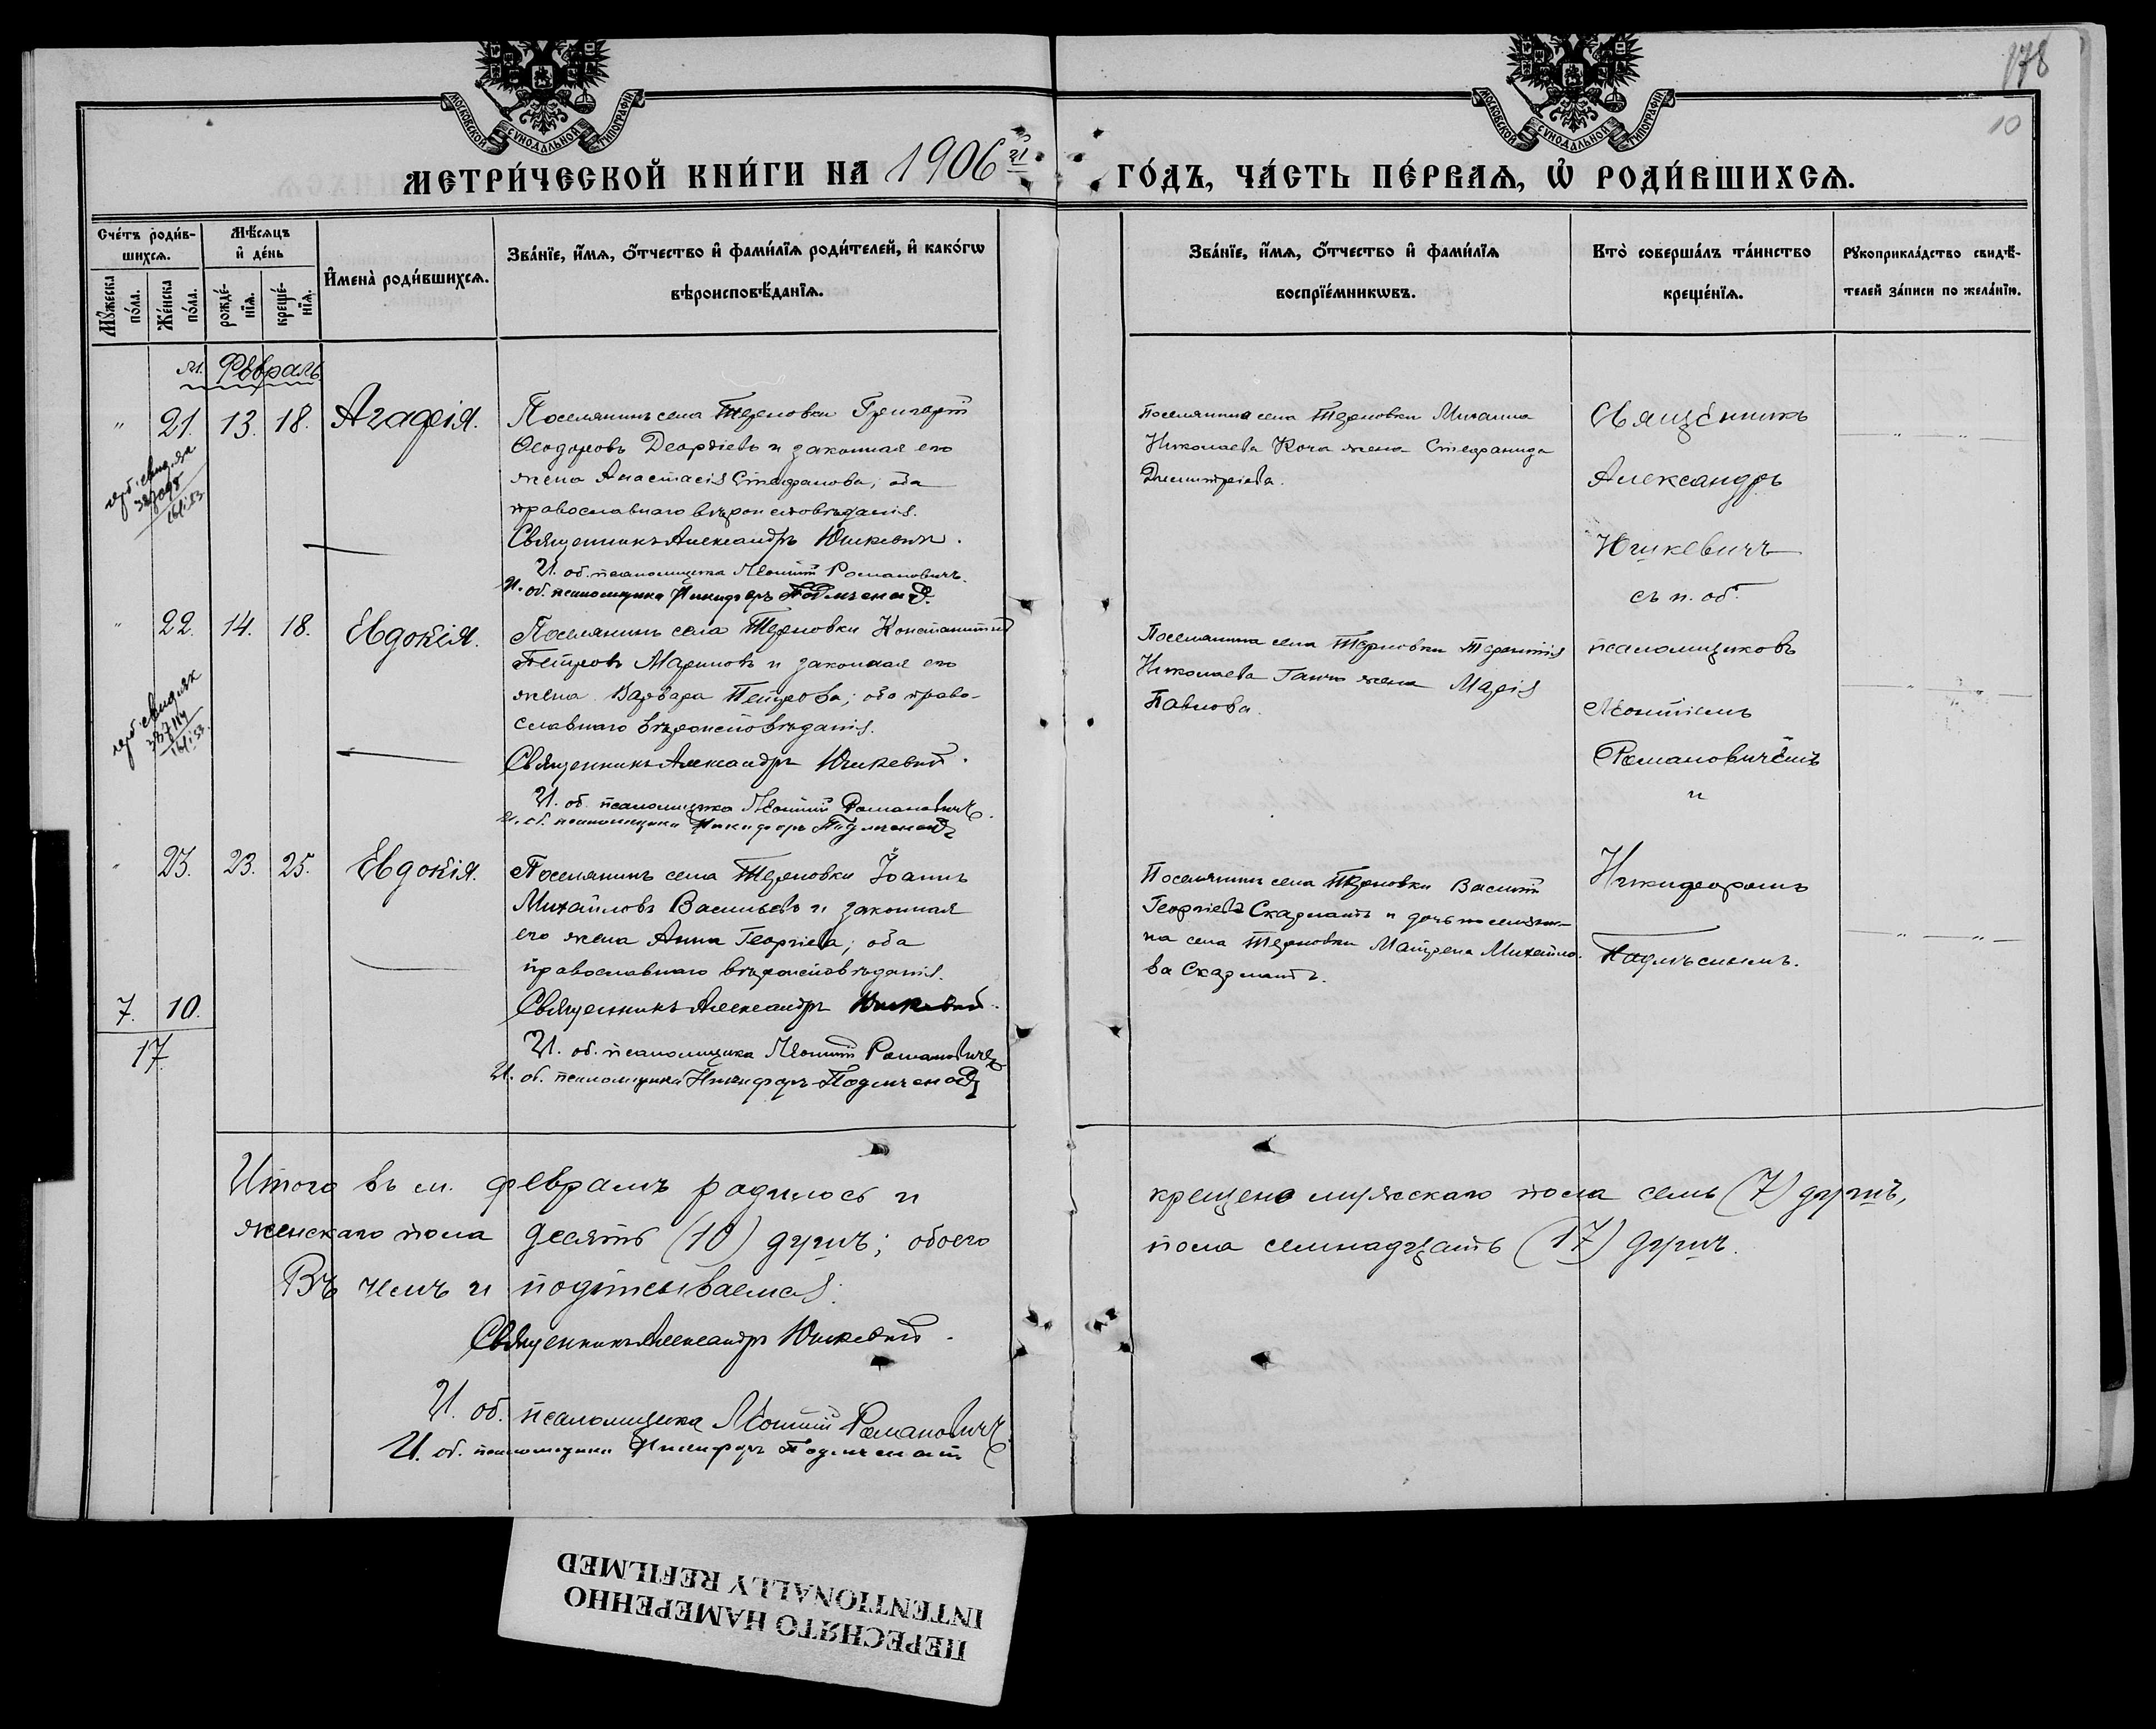 178
10
МОСКОВСКОЙ СѴНОДАЛЬНОЙ ТИПОГРАФІИ
МОСКОВСКОЙ СѴНОДАЛЬНОЙ ТИПОГРАФІИ
МЕТРИ́ЧЕСКОЙ КНИ́ГИ НА 1906й
ГО́ДЪ, ЧА́СТЬ ПЕ́РВАѦ, Ѡ҆ РОДИ́ВШИХСѦ.
Сче́тъ роди́в-
шихсѧ.
Мꙋ́жеска по́ла.
Же́нска по́ла.
Мѣ́сѧцъ
и҆ де́нь
рожде́-
нїѧ.
креще́-
нїѧ.
И҆мена̀ роди́вшихсѧ.
Зва́нїе, и҆́мѧ, ѻ҆́тчество и҆ фами́лїѧ роди́телей, и҆ како́гѡ
вѣроисповѣ́данїѧ.
Зва́нїе, и҆́мѧ, ѻ҆́тчество и҆ фами́лїѧ
воспрїе́мникѡвъ.
Кто̀ соверша́лъ та́инство
креще́нїѧ.
Рꙋкоприкла́дство свидѣ́-
телей за́писи по жела́нїю.
м. Февраль
" 21. 13. 18. Агафія.
Поселянинъ села Терновки Григорій
Ѳеодоровъ Деордіевъ и законная его
жена Анастасія Стефанова; оба
православнаго вѣроисповѣданія.
Священникъ Александръ Юшкевичъ.
И. об. псаломщика Леонтій Романовичъ.
И. об. псаломщика Никифоръ
Поселянина села Терновки Михаила
Николаева Коча жена Стефанида
Димитріева.
Священникъ
Александръ
Юшкевичъ
съ и. об.
псаломщиковъ
Леонтіемъ
Романовичемъ
и
Никифоромъ
" 22. 14. 18. Евдокія.
Поселянинъ села Терновки Константинъ
Петровъ Мариновъ и законная его
жена Варвара Петрова; оба право-
славнаго вѣроисповѣданія.
Священникъ Александръ Юшкевичъ.
И. об. псаломщика Леонтій Романовичъ.
И. об. псаломщика Никифоръ
Поселянина села Терновки Терентія
Николаева жена Марія
Павлова.
" 23. 23. 25. Евдокія.
Поселянинъ села Терновки Іоаннъ
Михайловъ Васильевъ и законная
его жена Анна Георгіева; оба
православнаго вѣроисповѣданія.
Священникъ Александръ Юшкевичъ.
И. об. псаломщика Леонтій Романовичъ
И. об. псаломщика Никифоръ
Поселянинъ села Терновки Василій
Георгіевъ Скарлатъ и дочь поселяни-
на села Терновки Матрена Михайло-
ва Скарлатъ.
7. 10.
17.
Итого въ м. февралѣ родилось и крещено мужескаго пола семь (7) душъ,
женскаго пола десять (10) душъ; обоего пола семнадцать (17) душъ.
Въ чемъ и подписываемся:
Священникъ Александръ Юшкевичъ.
И. об. псаломщика Леонтій Романовичъ
И. об. псаломщика Никифоръ
ПЕРЕСНЯТО НАМЕРЕННО
INTENTIONALLY REFILMED